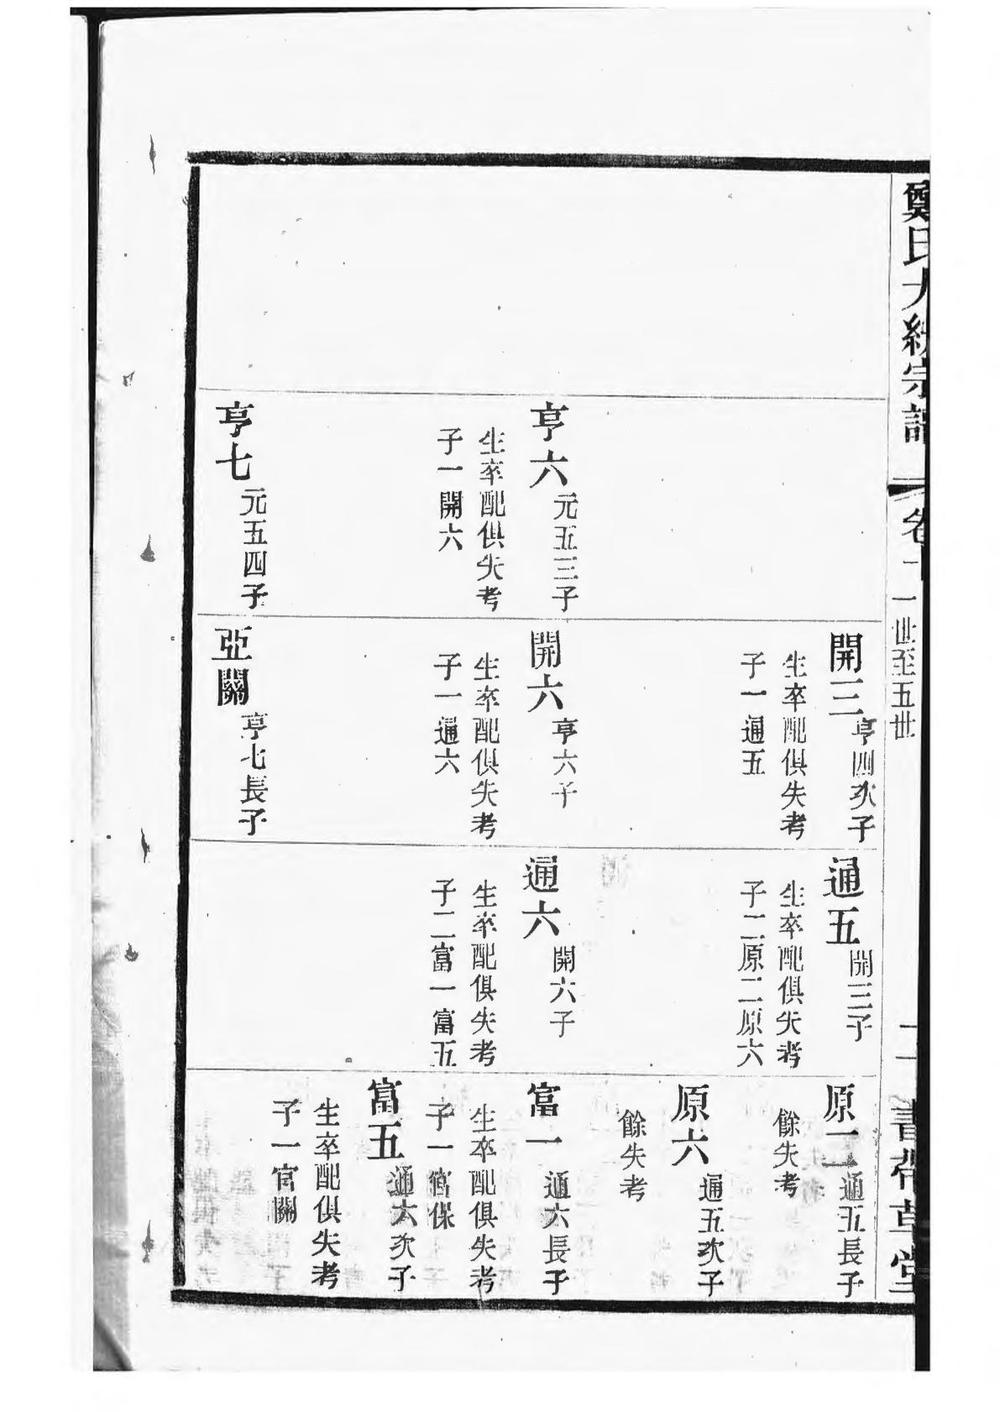 鄭氏大統宗譜
卷十
一世至五世
書帶草堂
亨六
元五三子
生卒配俱失考
子一開六
亨七
元五四子
開三
亨四次子
生卒配俱失考
子一通五
開六
亨六子
生卒配俱失考
子一通六
亞關
亨七長子
通五
開三子
生卒配俱失考
子二原二原六
通六
開六子
生卒配俱失考
子二富一富五
原二
通五長子
餘失考
原六
通五次子
餘失考
富一
通六長子
生卒配俱失考
子一官保
富五
通六次子
生卒配俱失考
子一官關